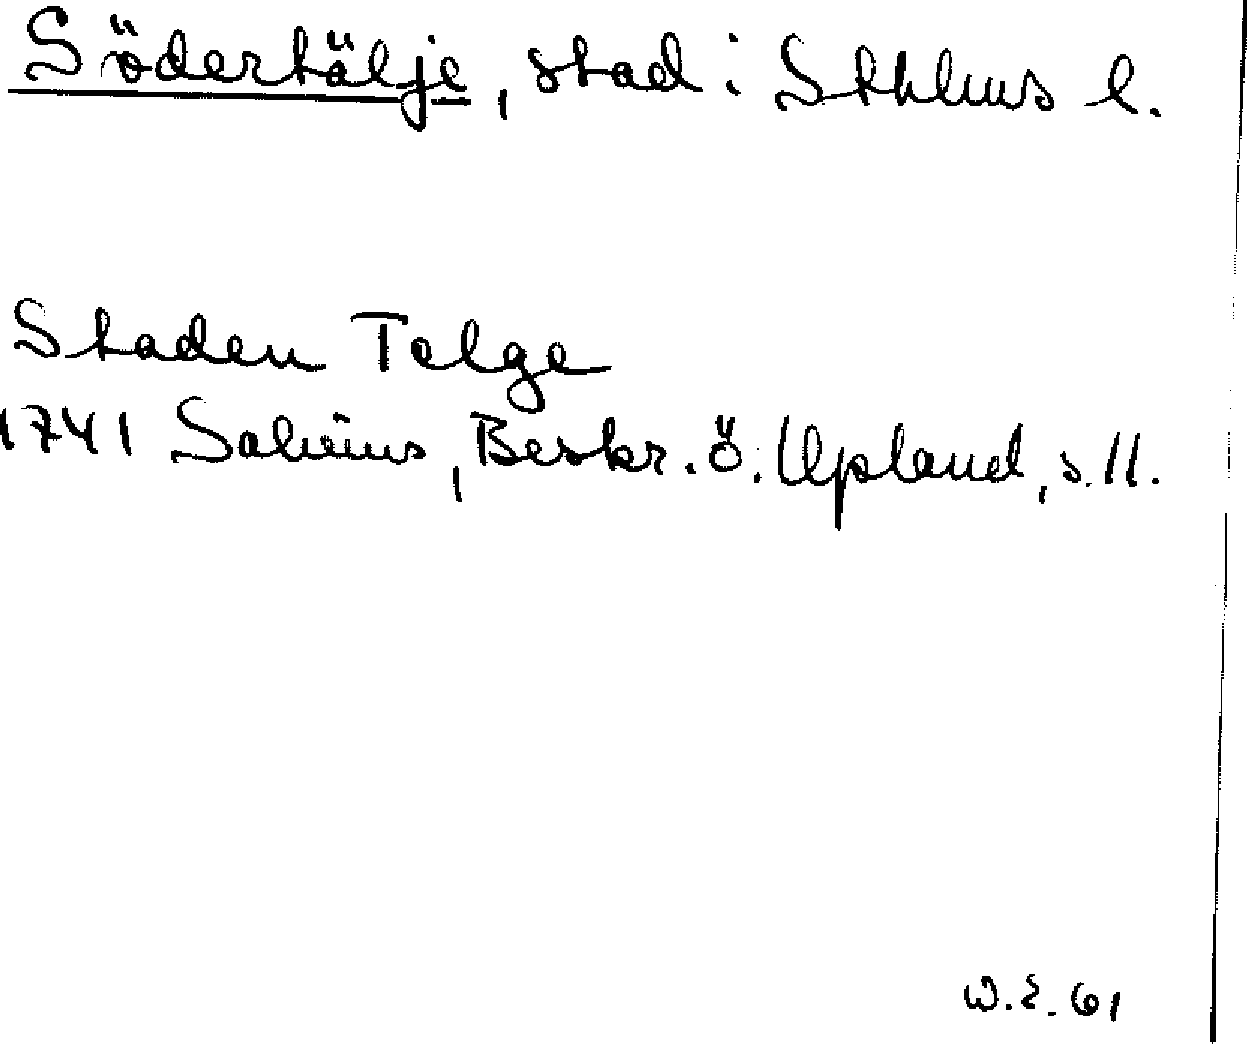 Södertälje, stad i Sthlms l.
Staden Telge
1741 Salvius, Beskr. ö. Upland, s. 11.
W.E. 61